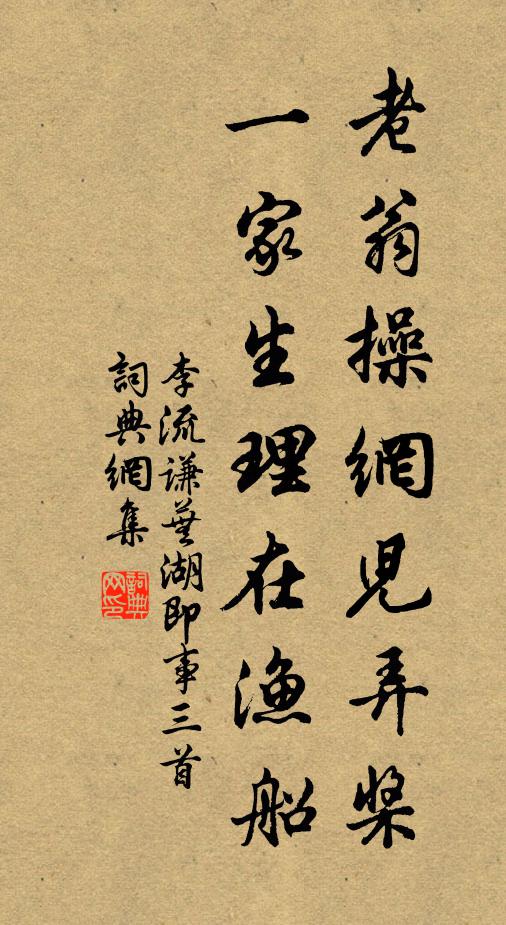 老翁操網兒弄槳
一家生理在漁船
李流謙蕪湖即事三首
詞典網集
詞典网印